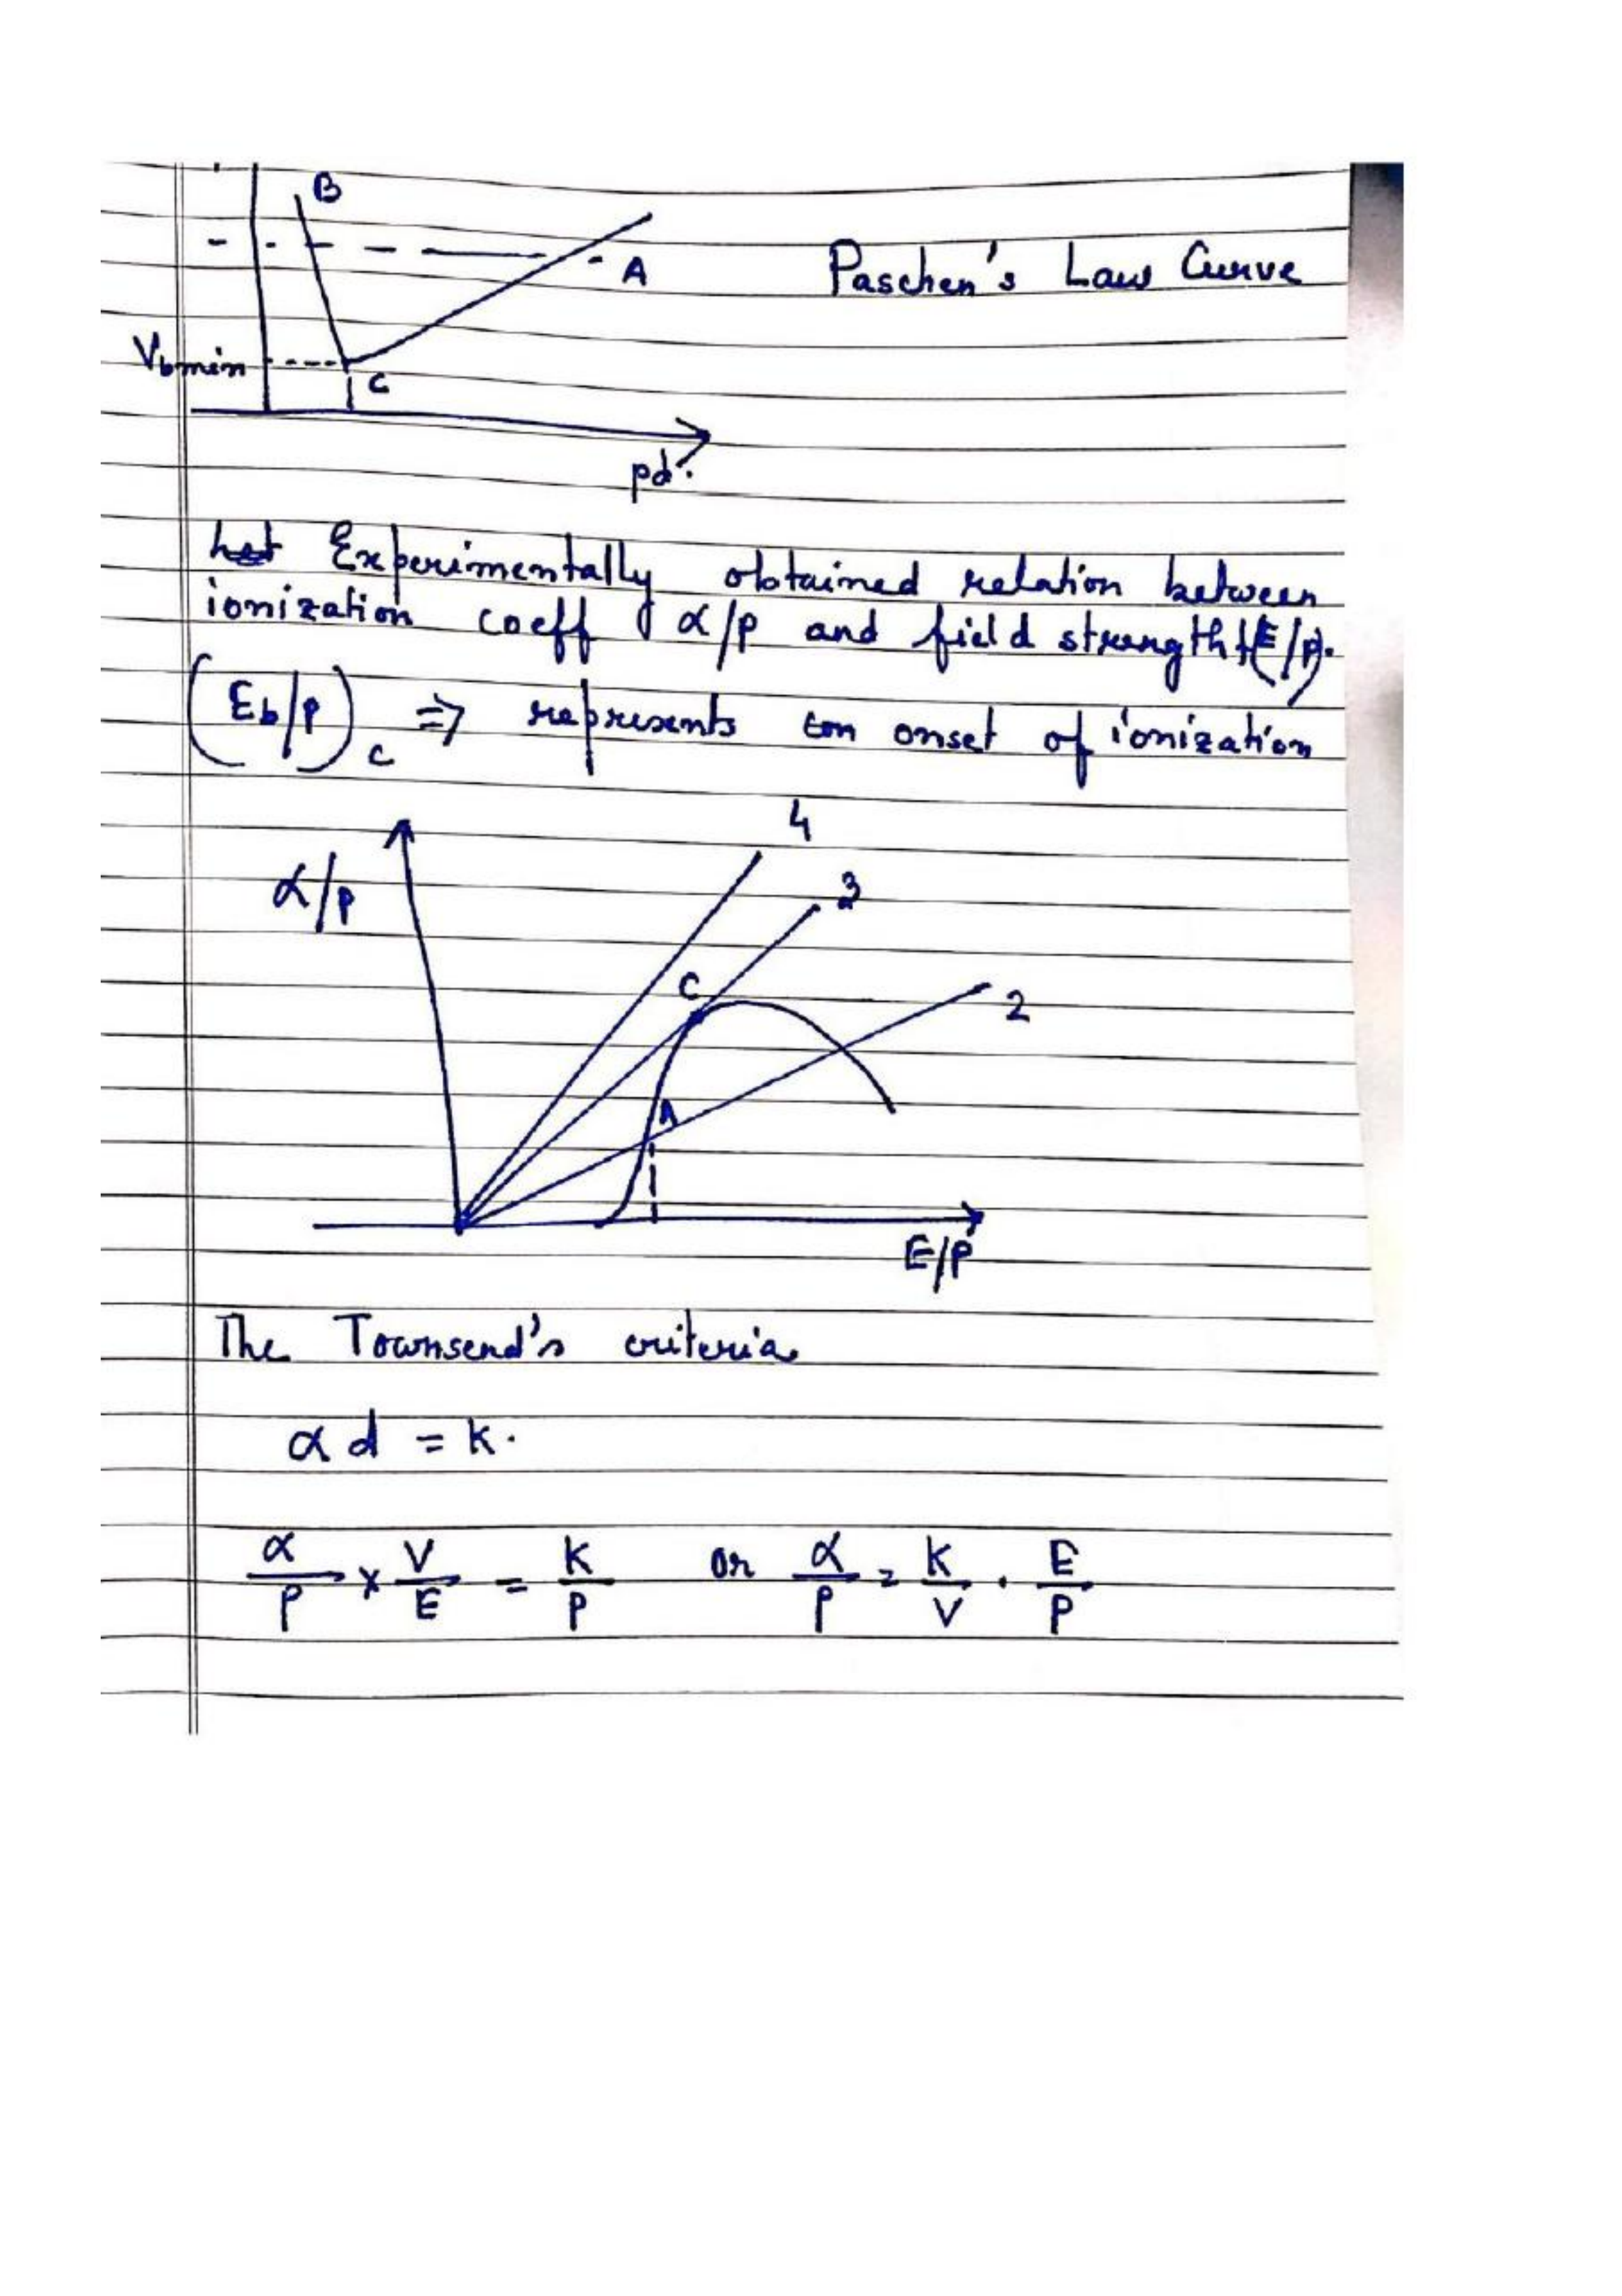 B
A
Paschen's Law Curve
Vbmin
C
pd.
Experimentally obtained relation between
ionization coeff α/p and field strength (E/p).
(Eb/p)c ⇒ represents on onset of ionization
4
α/p
3
C
2
A
E/P
The Townsend's criteria
α d = K.
α/P × V/E = K/P or α/P = K/V . E/P